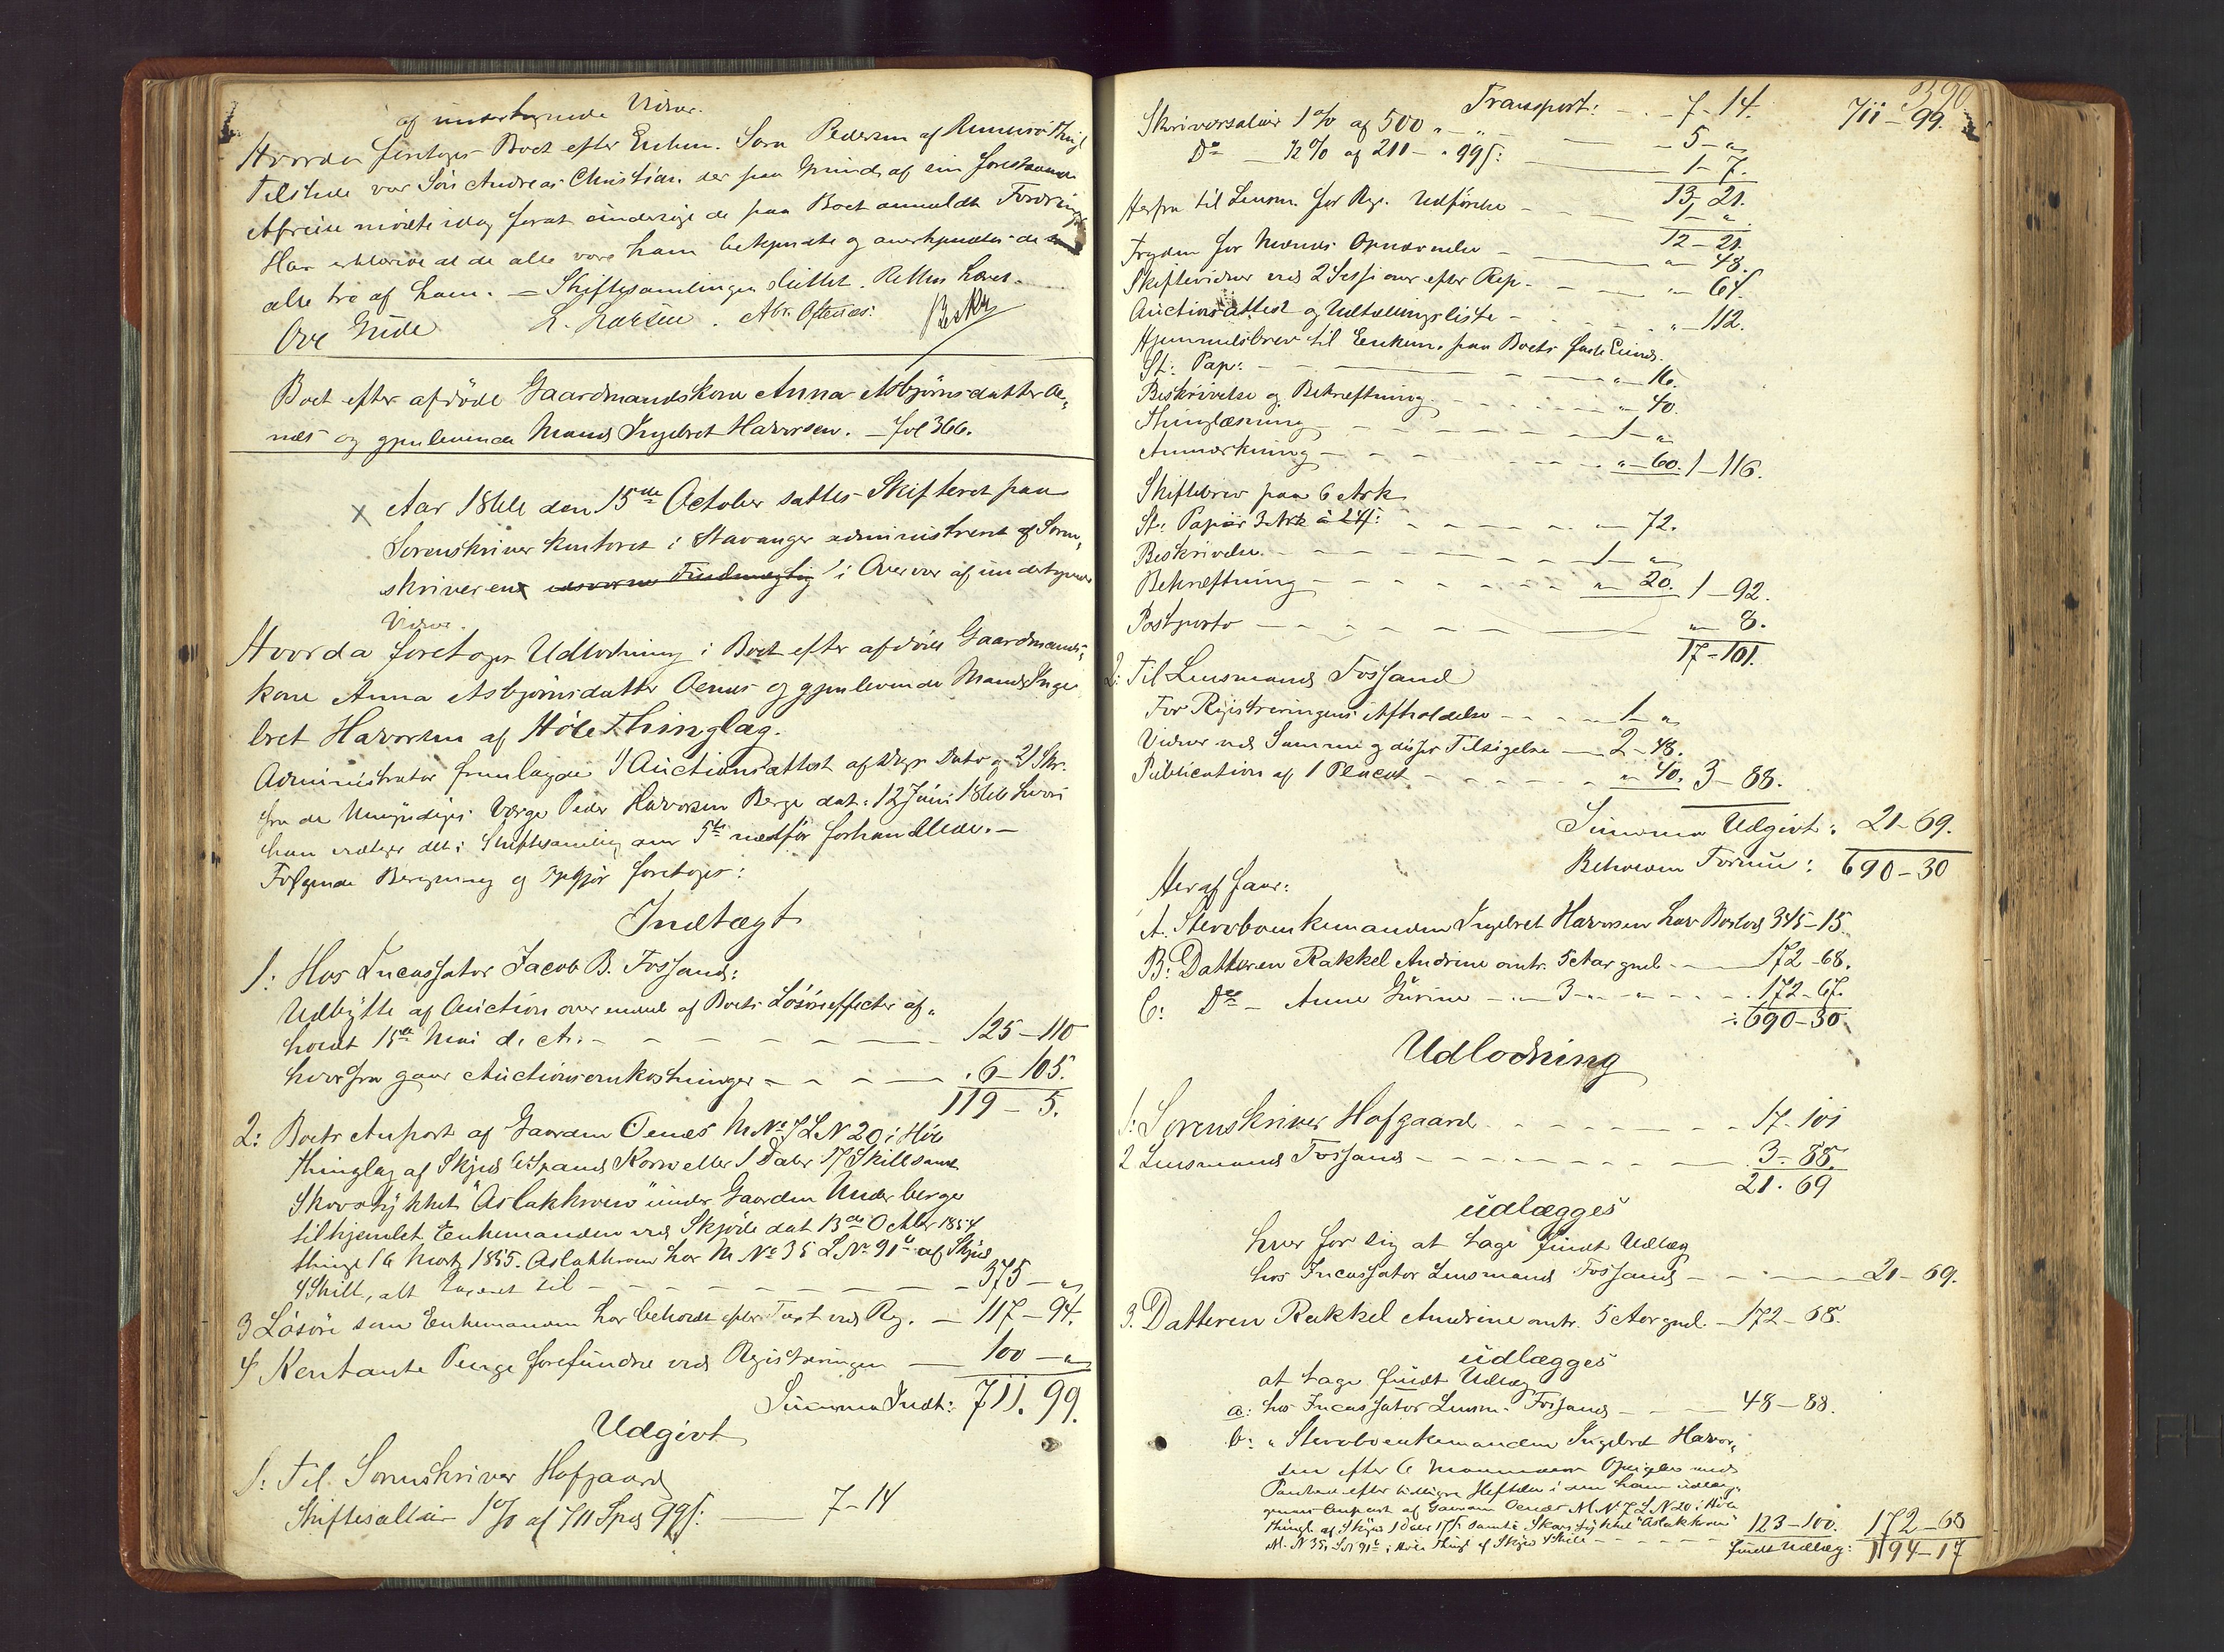 af undertegnede Vidner.
Hvorda foretoges Boet efter Enkem. Søren Pedersen af Rennesø Thingl
Tilstede var Søn Andreas Christian der paa Grund af sin forestaaende
Afreise mødte idag forat undersøge de paa Boet anmeldte Fordringer
Han erklærede at de alle vare ham bekjendte og anerkjendtes de
alle tro af ham. – Skiftesamlingen sluttet. Retten hævet.
Ove Gude L. Larsen. Abr. Oftenæs:
Boet efter afdøde Gaardmandskone Anna Asbjørnsdatter Oe„
næs og gjenlevende Mand Ingebret Havorsen. – fol 366.
x Aar 1866 den 15de October sattes Skifteret paa
Sorenskriver kontoret i Stavanger administreret af Soren„
skriveren edsvorne Fuldmægtig i Overvær af undertegnede
Vidner.
Hvorda foretoges Udlodning i Boet efter afdøde Gaardmands„
kone Anna Asbjørnsdatter Oenæs og gjenlevende Mand Inge
bret Havorsen af Høle Thinglag.
Administrator fremlagde 1) Auctionsattest af Dags Dato og 2) Skr.
fra de Umyndiges Værge Peder Havorsen Berge dat: 12 Juni 1866 hvori
han vedtager det i Skiftesamling am 5te næstfør forhandlede. –
Følgende Beregning og Opgjør foretoges:
Indtægt
1: Hos Incassator Jacob B. Fossand:
Udbytte af Auction over endel af Boets Løsøreeffecter af„
holdt 15de Mai d. A. – – – – 125 – 110
hvorfra gaar Auctionsomkostninger – – – 6 – 105.
119 – 5.
2: Boets Anpart af Gaarden Oenæs M No 7 L N 20 i Høle
Thinglag af Skyld 6 Spand Korn eller 1 Daler 17 Skill samt
Skovstykket "Aslakkroen" under Gaarden Underberge
tilhjemlet Enkemanden ved Skjøde dat 13de Octbr 1854
thingl 16 Marts 1855. Aslakkroen har M No 35 L No 91b af Skyld
4 Skill, alt taxeret til – – – – 375 – "
3 Løsøre som Enkemanden har beholdt efter Taxt ved Reg. – 117 – 94.
4 Kontante Penge forefundne ved Registreringen – 100 – "
Summa Indt: 711. 99.
Udgivt
1: Til Sorenskriver Hofgaard
Skiftesallair 1 % af 711 Spd 99 s: – 7 – 14
390
Transport: – . – 7 – 14. 711 – 99.
Skriversalair 1 % af 500 „ – „ – – 5 – „
Do – ½ % af 211 – „ 99 s: – 1 – 7.
13 – 21.
Herfra til Lensm. for Reg. Udførelse – – – 1 – „
12 – 21.
Fogden for Mænds Opnævnelse – – „ – 48.
Skiftevidner ved 2 Sessioner efter Rep. – – „ – 64.
Auctionsattest og Udtællingsliste – – – „ – 112.
Hjemmelsbrev til Enkem. paa Boets faste Eiend.
St: Pap: – – – „ – 16.
Beskrivelse og Bekræftning – – – „ – 40.
Thinglæsning – – – 1 – „
Anmærkning – – – „ – 60. 1 – 116.
Skiftebrev paa 6 Ark
St: Papiir 3 Ark à 24 s: – – – „ – 72.
Beskrivelse. – – – 1 – „
Bekræftning – – – „ – 20. 1 – 92.
Postporto – – – „ – 8.
17 – 101.
2: Til Lensmand Fossand
For Registreringens Afholdelse – – 1 – „
Vidner ved Samme og disses Tilsigelse – 2 – 48.
Publication af 1 Placat – – – „ – 40. 3 – 88.
Summa Udgivt: 21 – 69.
Beholden Formue: 690 – 30
Heraf faar:
A. Stervboenkemanden Ingebret Havorsen hav Boslod 345 – 15
B: Datteren Rakkel Andrine omtr. 5 Aar gml – 172 – 68.
C: De – Anne Gurine – „ – 3 – „ – „ – – 172 – 67.
÷ 690 – 30
Udlodning
1: Sorenskriver Hofgaard – – – 17 – 101
2 Lensmand Fossand – – – 3 – 88.
21. 69
udlægges
hver for sig at tage fuldt Udlæg
hos Incassator Lensmand Fossand – – – 21 – 69.
3. Datteren Rakkel Andrine omtr. 5 Aar gml. – 172 – 68.
udlægges
at tage fuldt Udlæg
a: hos Incassator Lensm. Fossand – – 48 – 88.
b: „ Stervboenkemanden Ingebret Havor„
sen efter 6 Maaneders Opsigelse med
Panteret efter tidligere Heftelser i den ham udlag„
gende Anpart af Gaarden Oenæs M. N. 7 L N 20 i Høle
Thingl. af Skyld 1 Daler 17 s samt Skovstykket "Aslakkroen"
M. N 35, L N 91b i Høle Thingl af Skyld 4 Skill – – – 123 – 100. 172 – 68
fuldt Udlæg: 194 – 17